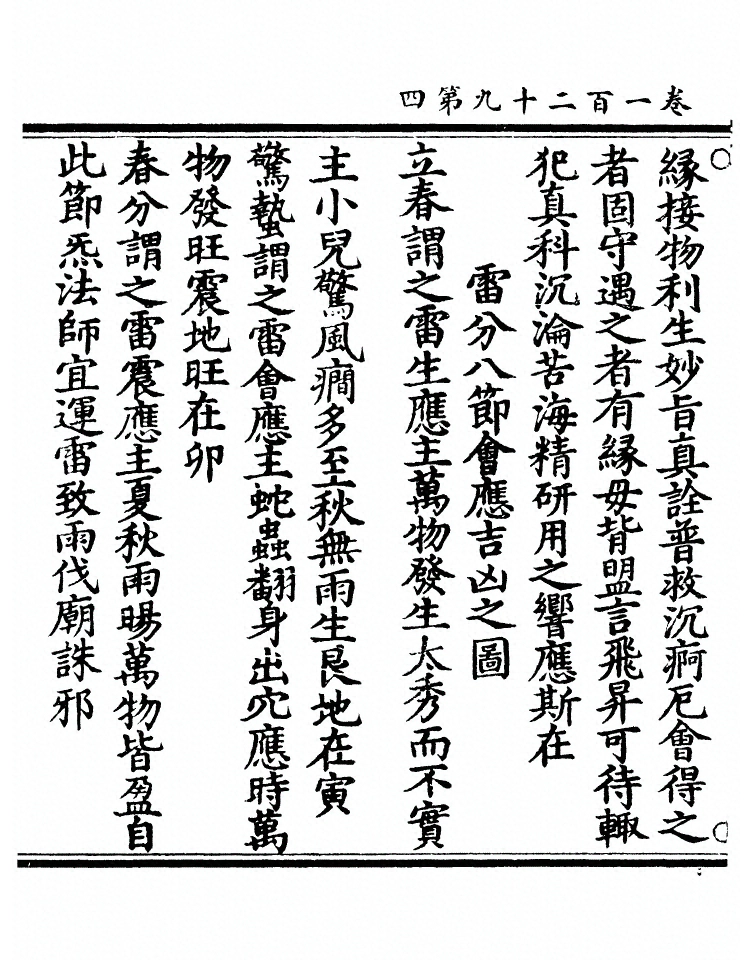 卷一百二十九第四
緣接物利生妙旨真詮普救沉痾厄會得之
者固守遇之者有緣毋背盟言飛昇可待輙
犯真科沉淪苦海精研用之響應斯在
雷分八節會應吉凶之圖
立春謂之雷生應主萬物發生太秀而不實
主小兒驚風癇多至秋無雨生艮地在寅
驚蟄謂之雷會應主蛇蟲翻身出穴應時萬
物發旺震地旺在卯
春分謂之雷震應主夏秋雨暘萬物皆盈自
此節炁法師宜運雷致雨伐廟誅邪